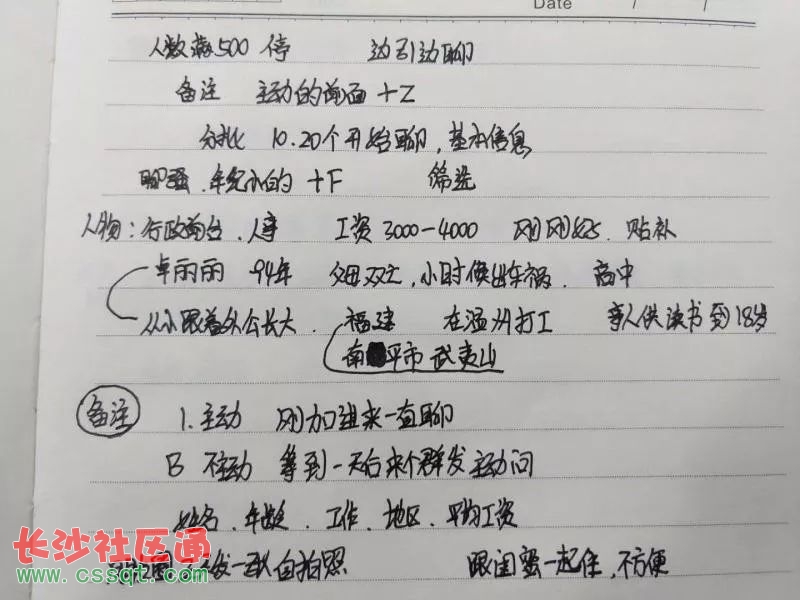 Date / /
人数满500停 边引边聊
备注 主动的前面+Z
分批 10.20个开始聊,基本信息
聊骚.年纪小的+F 筛选
人物:行政前台.人事 工资3000-4000 刚刚好.贴补
卓丽丽 94年 父母双亡,小时候出车祸.高中
从小跟着外公长大.福建 在温州打工 亲人供读书到18岁
南平市武夷山
备注 1.主动 刚加进来一直聊
B 不主动 等到一天后来个群发主动问
姓名.年龄.工作.地区.平均工资
发一张自拍照 跟闺蜜一起住,不方便
长沙社区通
www.cssqt.com